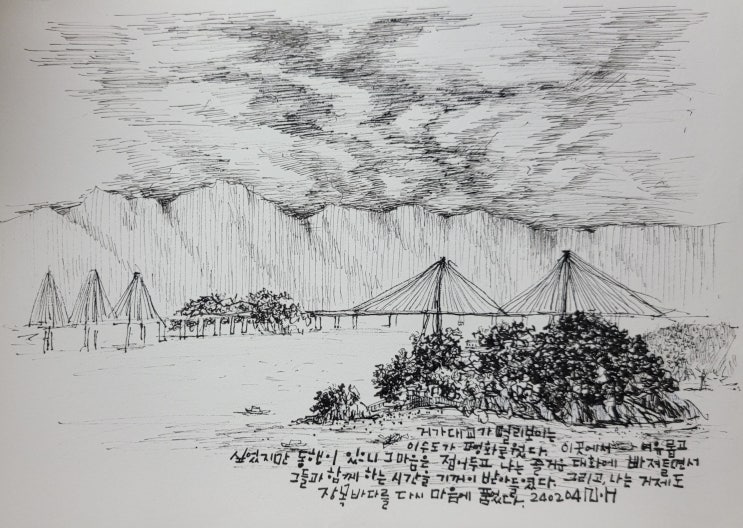 거가대교가 멀리보이는
이수도가 평화로웠다. 이곳에서 여유롭고
싶었지만 동행이 있으니 그마음은 접어두고 나는 즐거운 대화에 빠져들면서
그들과 함께 하는 시간을 기꺼이 받아드렸다. 그리고, 나는 거제도
장목바다를 다시 마음에 품었다. 240204